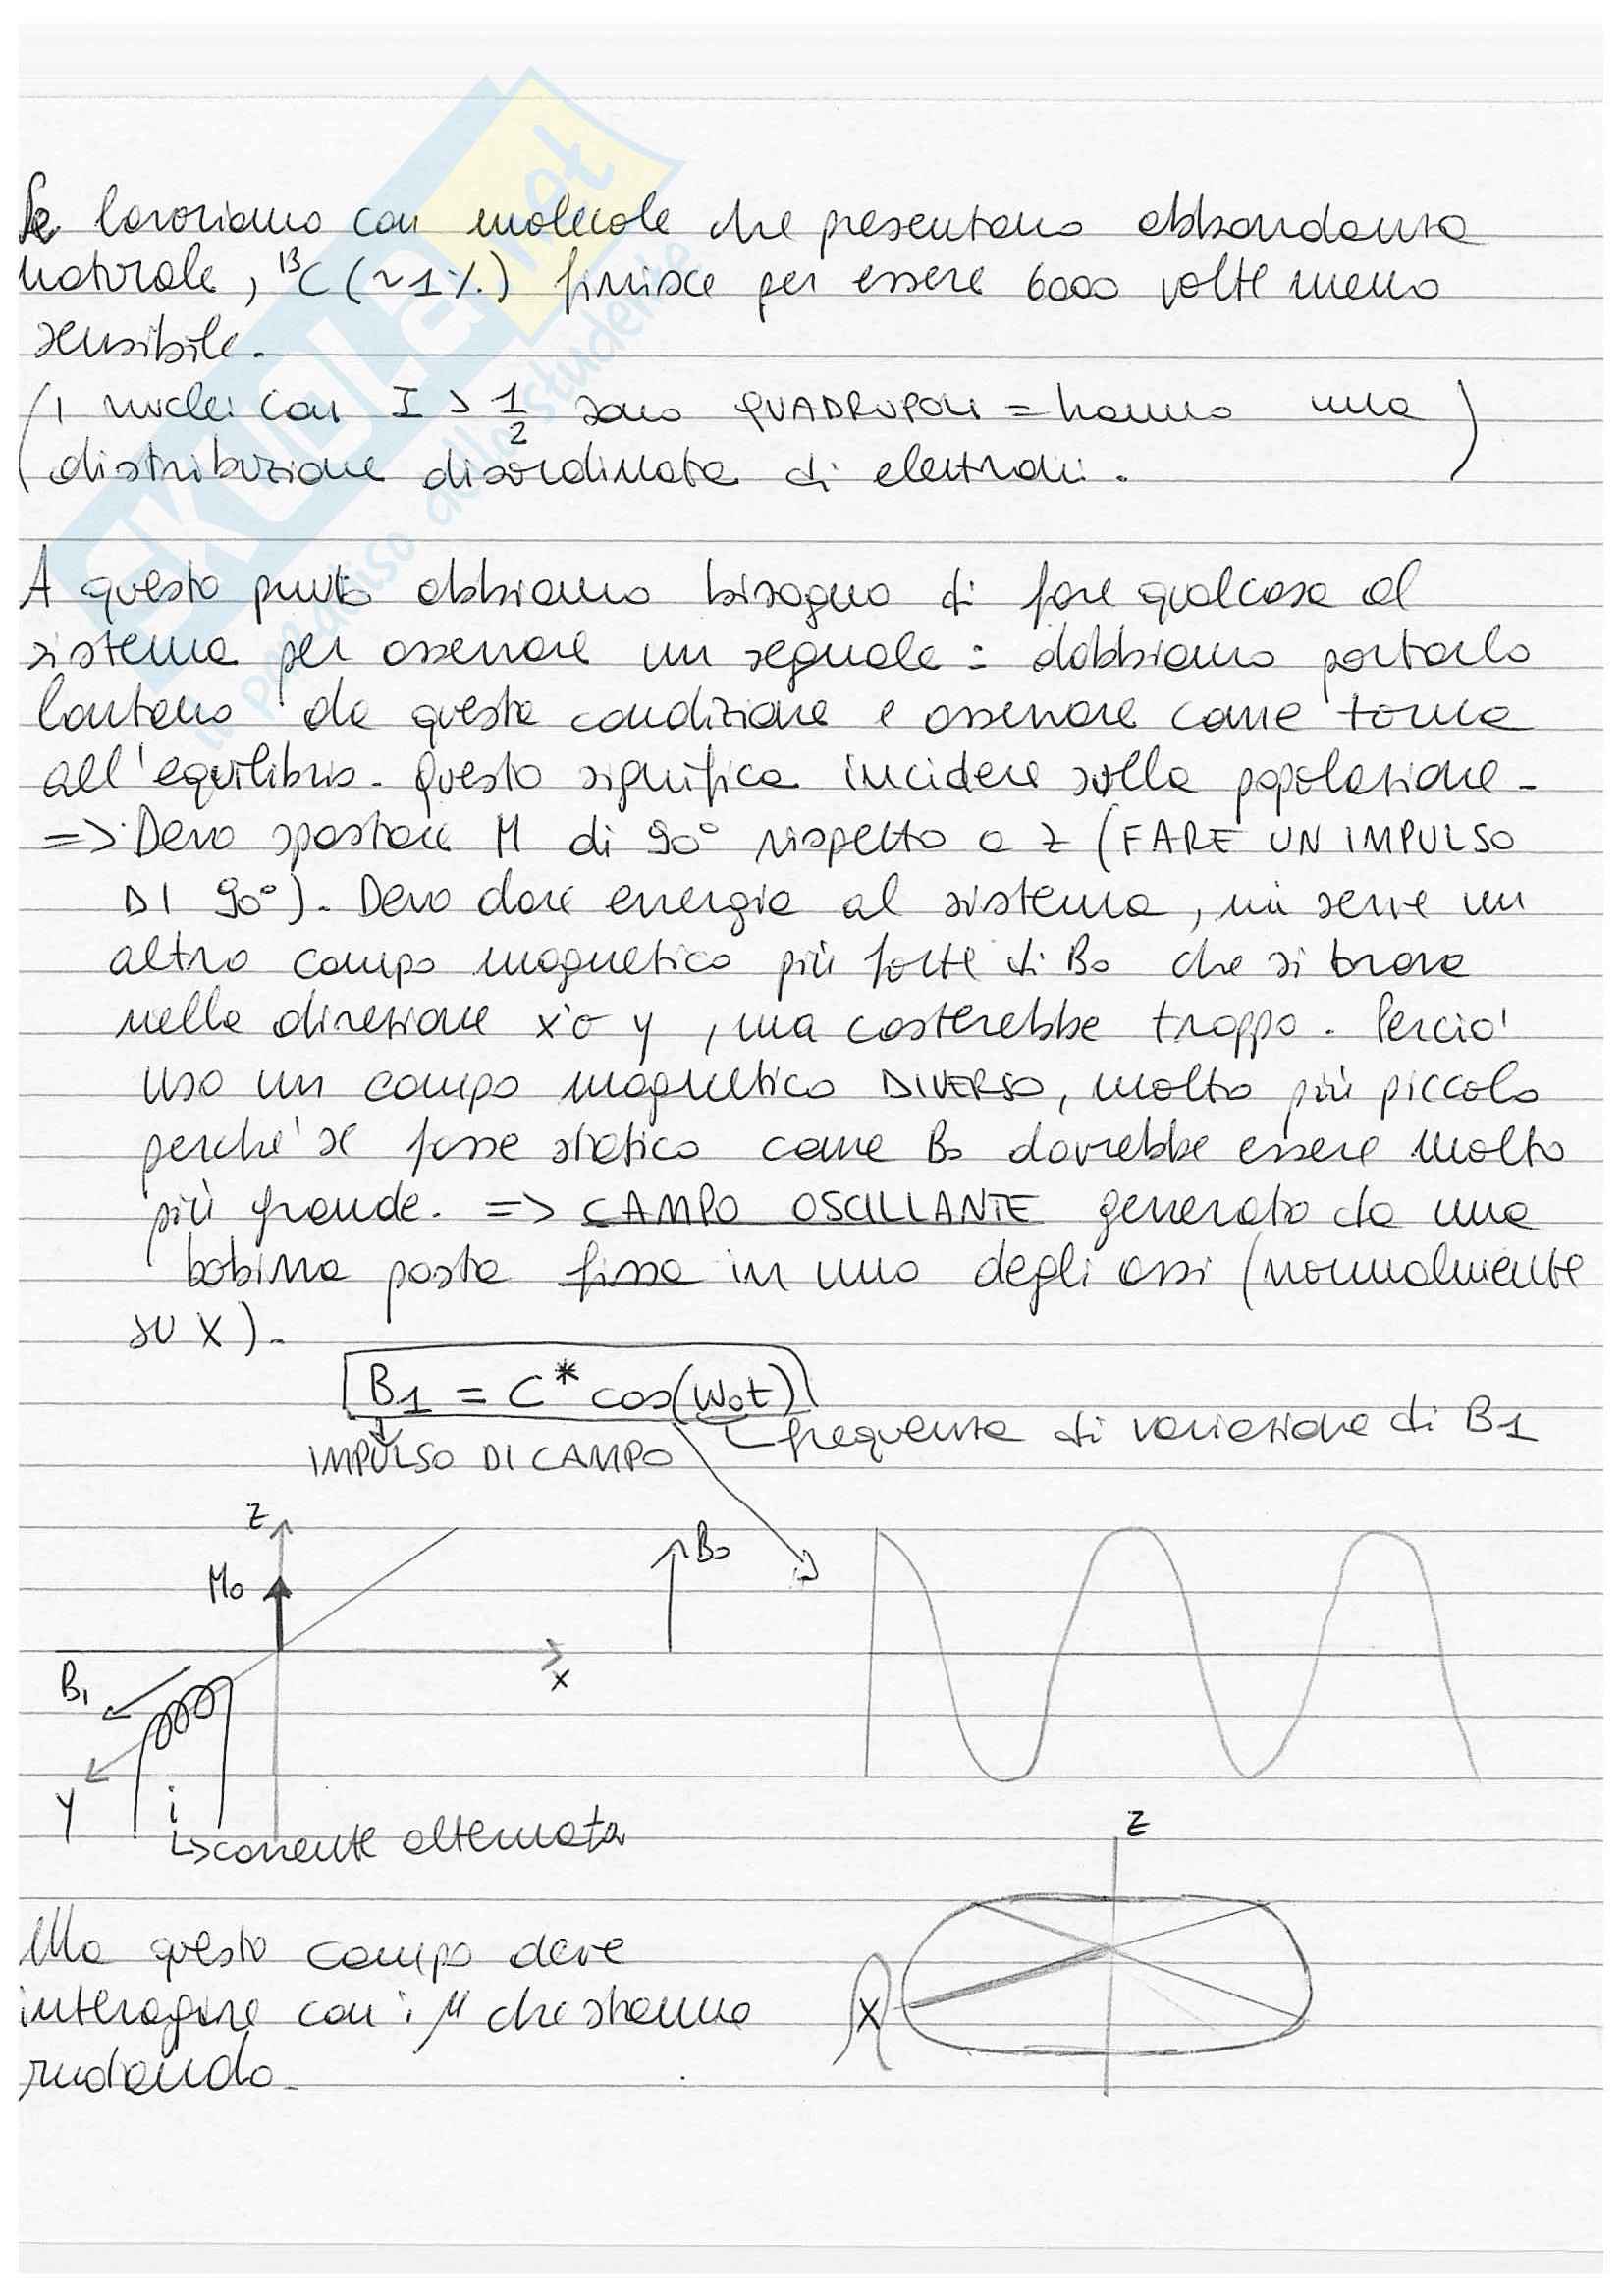 Se lavoriamo con molecole che presentano abbondanza
naturale, ¹³C (~1%) finisce per essere 6000 volte meno
sensibile.
(I nuclei con I > 1/2 sono QUADRUPOLI = hanno una
distribuzione disordinata di elettroni.)
A questo punto abbiamo bisogno di fare qualcosa al
sistema per osservare un segnale: dobbiamo portarlo
lontano da questa condizione e osservare come torna
all'equilibrio. Questo significa incidere sulla popolazione.
=> Devo spostare M di 90° rispetto a z (FARE UN IMPULSO
DI 90°). Devo dare energia al sistema, mi serve un
altro campo magnetico più forte di B0 che si trova
nella direzione x o y, ma costerebbe troppo. Perciò
uso un campo magnetico DIVERSO, molto più piccolo
perché se fosse statico come B0 dovrebbe essere molto
più grande. => CAMPO OSCILLANTE generato da una
bobina posta fissa in uno degli assi (normalmente
su x).
B1 = C* cos(W0t)
frequenza di variazione di B1
IMPULSO DI CAMPO
z
M0
B0
x
B1
y
i
corrente alternata
z
Ma questo campo deve
interagire con i μ che stanno
x
ruotando.
SKUOLA.net
il paradiso dello studente